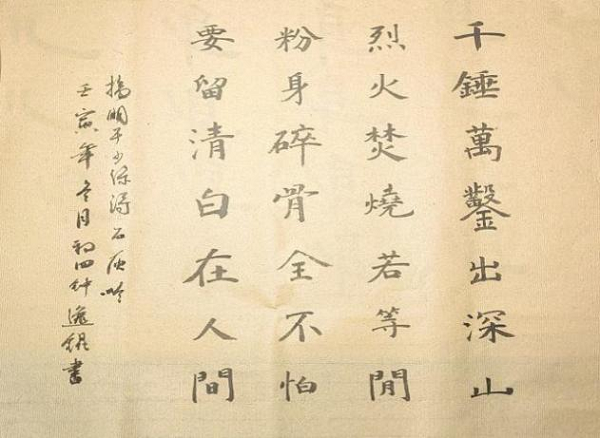 千錘萬鑿出深山
烈火焚燒若等閒
粉身碎骨全不怕
要留清白在人間
于少保 石灰吟
壬寅年冬月初四 鍾逸錕書